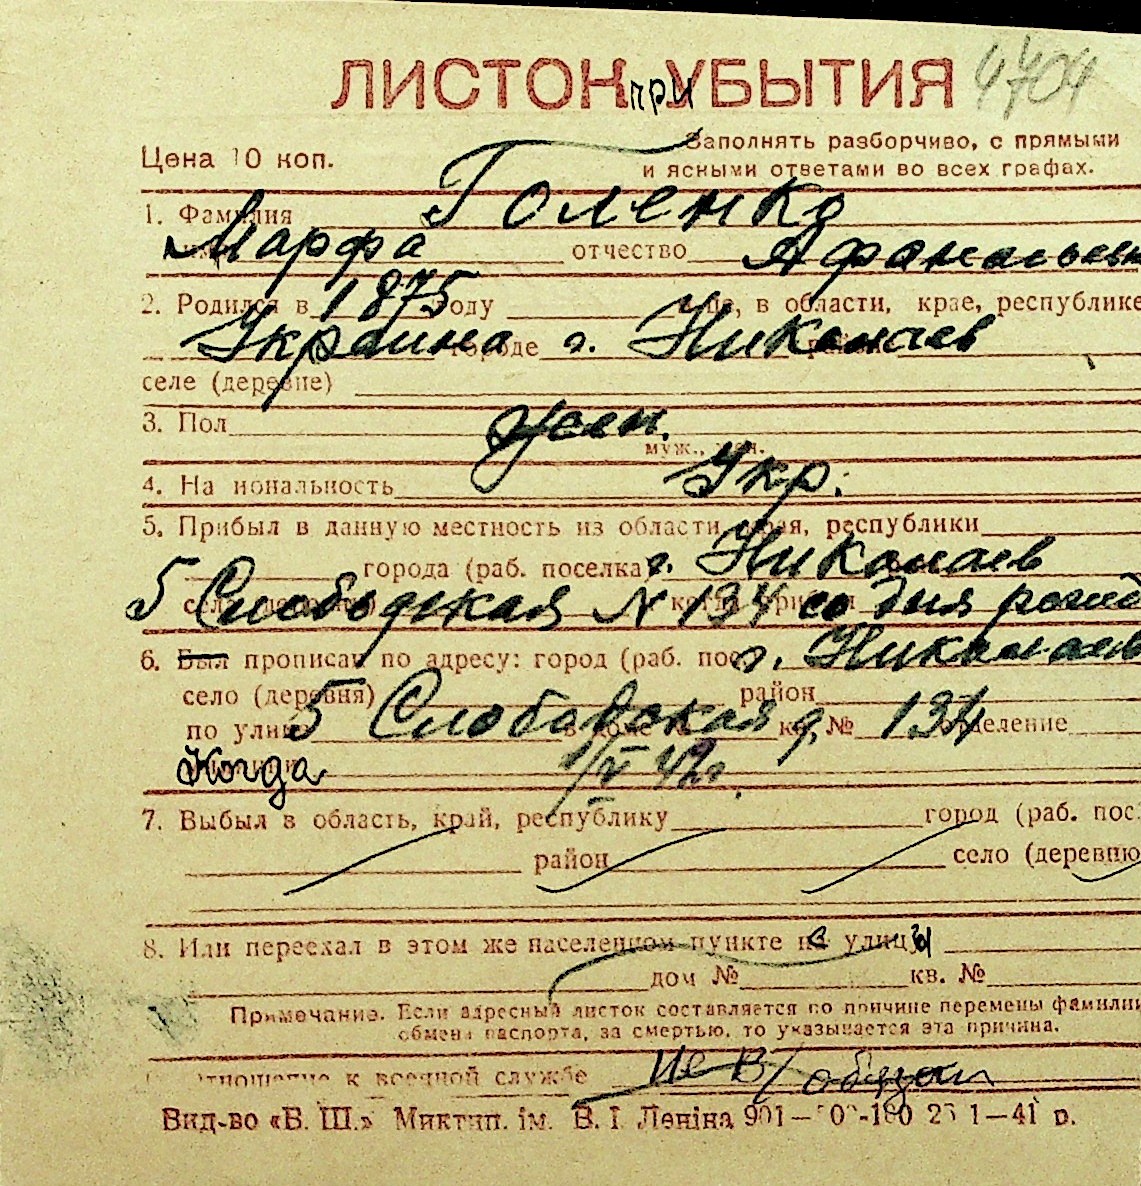 ЛИСТОК при УБЫТИЯ 4704
Цена 10 коп.
Заполнять разборчиво, с прямыми
и ясными ответами во всех графах.
1. Фамилия Голенко
Марфа отчество
2. Родился в 1875 году в области, крае, республике
Украина городе г. Николаев
селе (деревне)
3. Пол жен.
муж., жен.
4. На иональность Укр.
5. Прибыл в данную местность из области, края, республики
города (раб. поселка г. Николаев
5 Слободская № 134 со дня рожд
6. Был прописан по адресу: город (раб. пос г. Николаев
село (деревня) район
по улице 5 Слободская д. № 134 отделение
Когда 1/V 42г.
7. Выбыл в область, край, республику город (раб. пос.
район село (деревню
8. Или переехал в этом же населенном пункте с улицы
дом № кв. №
Примечание. Если адресный листок составляется по причине перемены фамилии
обмена паспорта, за смертью, то указывается эта причина.
отношение к военной службе не в/обязан
Вид-во «В. Ш.» Миктип. ім. В. І Леніна 1—41 р.